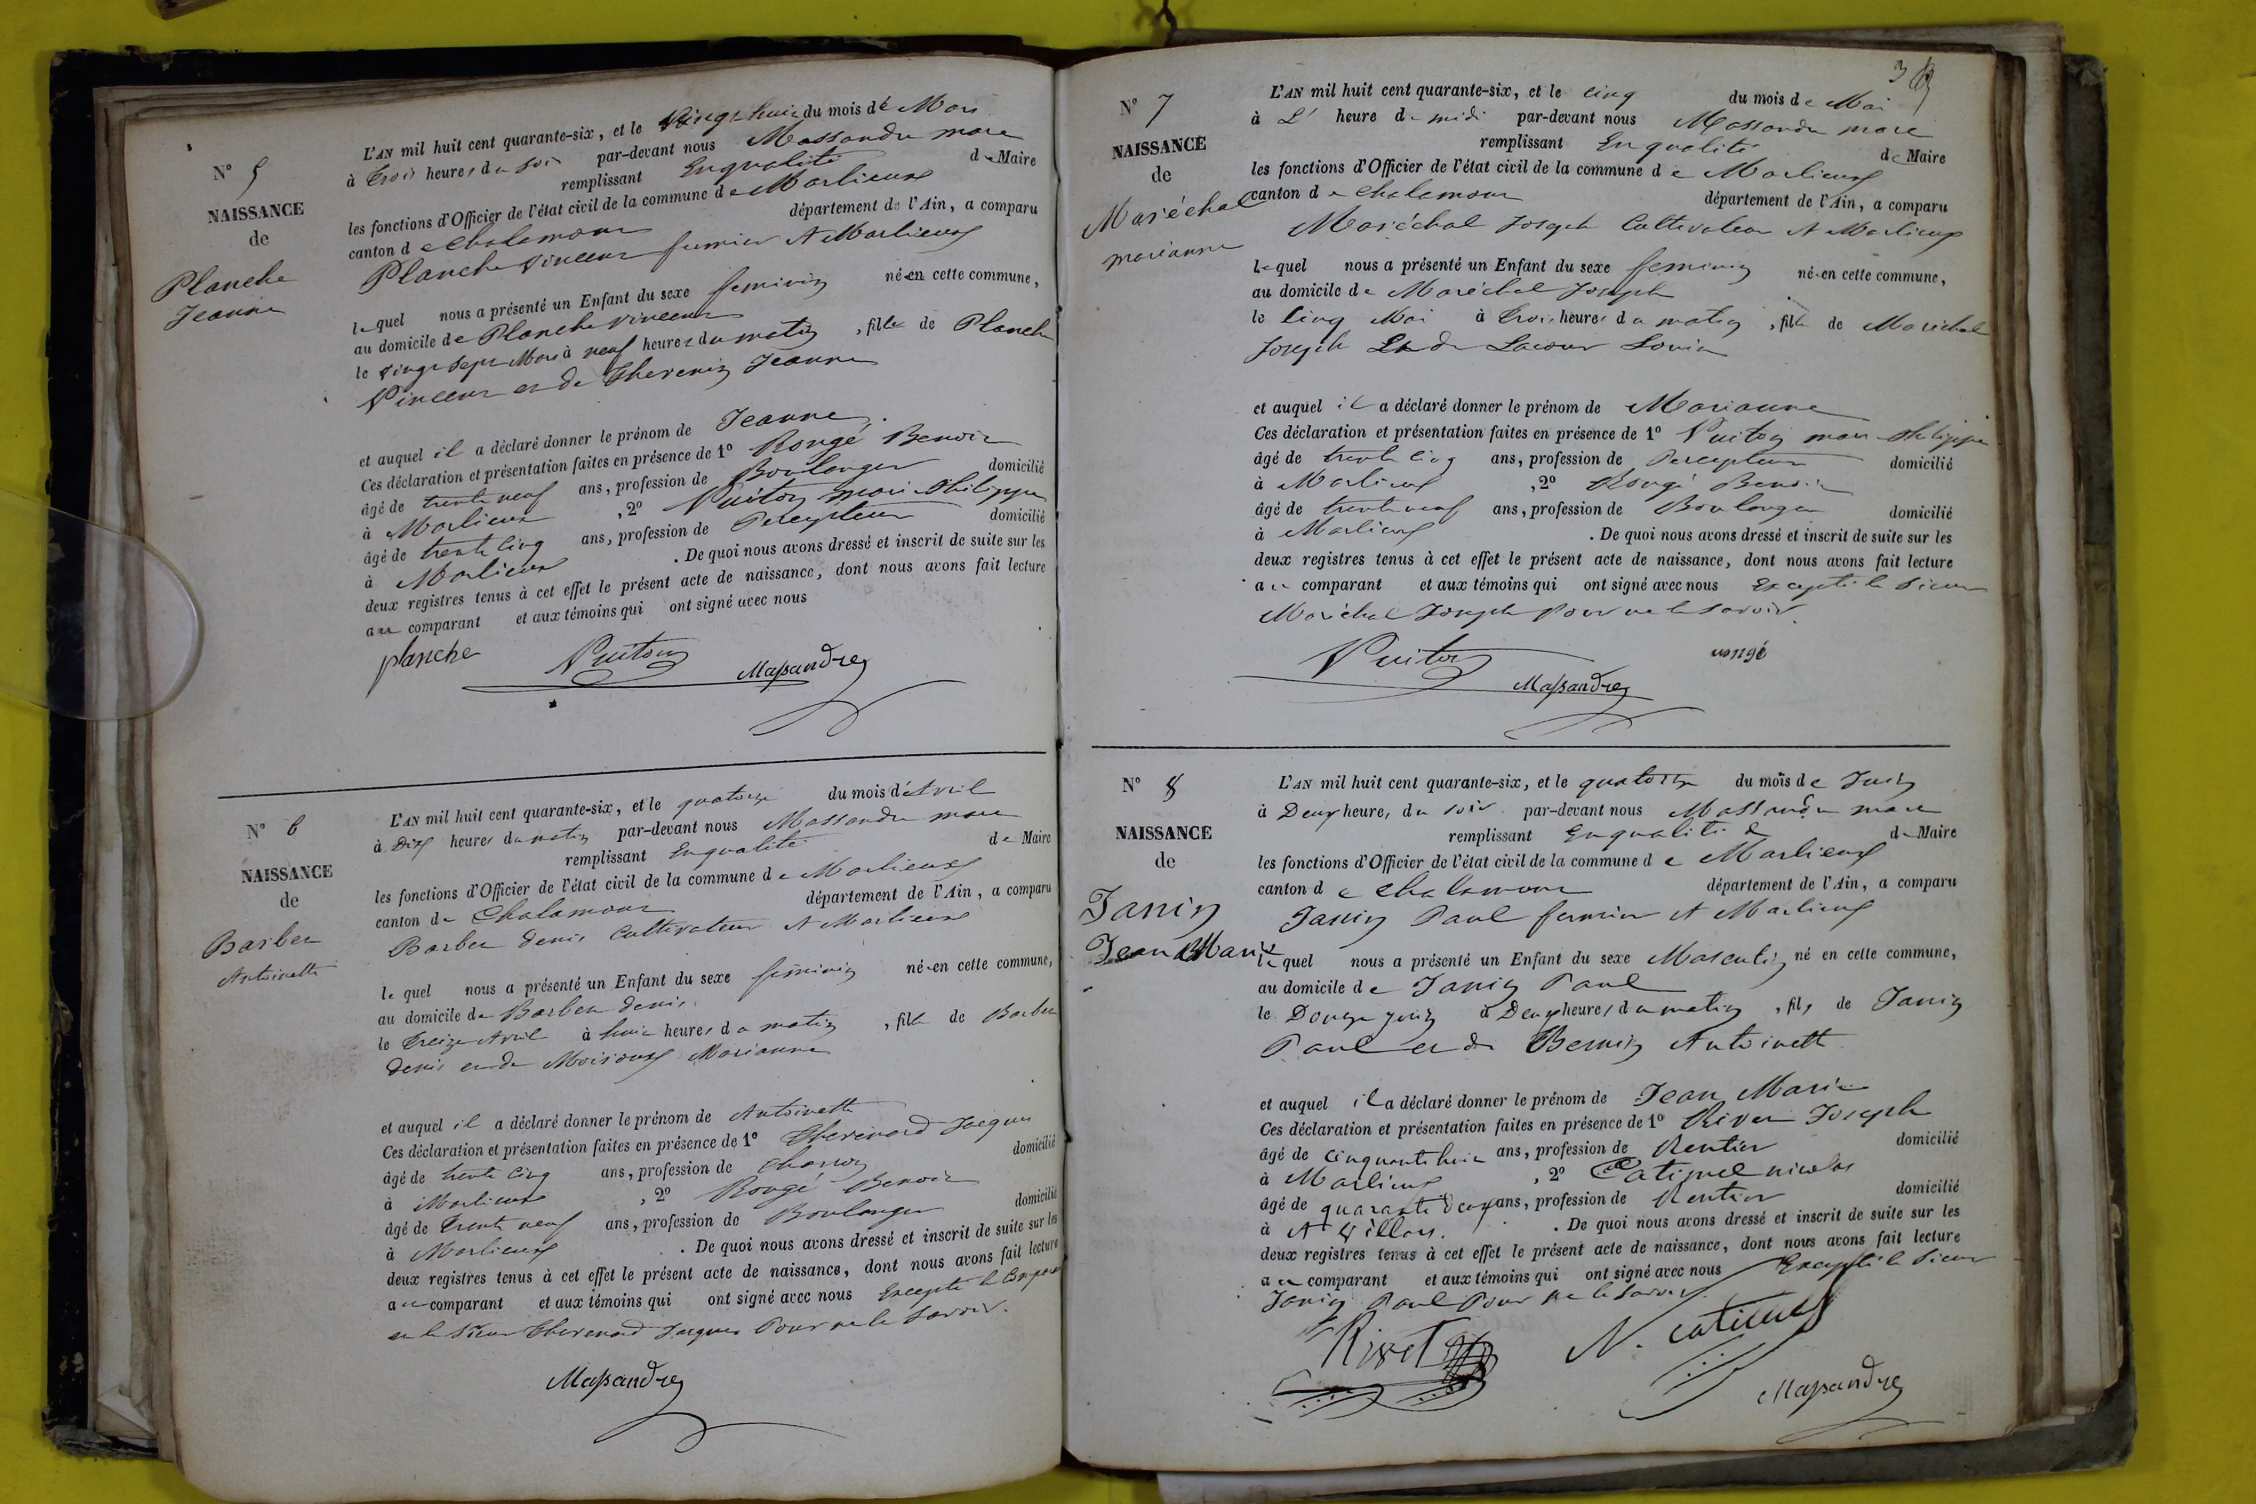 N° 5
NAISSANCE
de
Planche
Jeanne
L'AN mil huit cent quarante-six, et le Vingt huit du mois de Mars
à trois heures du soir par-devant nous Massandre marc
remplissant En qualité de Maire
les fonctions d'Officier de l'état civil de la commune de Marlieux
canton de Chalamont département de l'Ain, a comparu
Planche Vincent fermier A Marlieux
lequel nous a présenté un Enfant du sexe feminin né en cette commune,
au domicile de Planche Vincent
le vingt sept Mars à neuf heures du matin, fille de Planche
Vincent et de Thevenin Jeanne
et auquel il a déclaré donner le prénom de Jeanne.
Ces déclaration et présentation faites en présence de 1° Rongé Benoit
âgé de trente neuf ans, profession de Boulanger domicilié
à Marlieux, 2° Vuiton mari Philippe
âgé de trente cinq ans, profession de Percepteur domicilié
à Marlieux. De quoi nous avons dressé et inscrit de suite sur les
deux registres tenus à cet effet le présent acte de naissance, dont nous avons fait lecture
au comparant et aux témoins qui ont signé avec nous
planche Vuiton Massandre
N° 6
NAISSANCE
de
Barbet
Antoinette
L'AN mil huit cent quarante-six, et le quatorze du mois d'Avril
à Dix heures du matin par-devant nous Massandre marc
remplissant En qualité de Maire
les fonctions d'Officier de l'état civil de la commune de Marlieux
canton de Chalamont département de l'Ain, a comparu
Barbet denis Cultivateur A Marlieux
lequel nous a présenté un Enfant du sexe féminin né en cette commune,
au domicile de Barbet denis
le treize Avril à huit heures du matin, fille de Barbet
denis et de Moiroux Marianne
et auquel il a déclaré donner le prénom de Antoinette
Ces déclaration et présentation faites en présence de 1° Thevenard Jacques
âgé de trente cinq ans, profession de charron domicilié
à Marlieux, 2° Rongé Benoit
âgé de trente neuf ans, profession de Boulanger domicilié
à Marlieux. De quoi nous avons dressé et inscrit de suite sur les
deux registres tenus à cet effet le présent acte de naissance, dont nous avons fait lecture
au comparant et aux témoins qui ont signé avec nous Excepté le Comparant
et le Sieur Thevenard Jacques Pour ne le Savoir.
Massandre
3
N° 7
NAISSANCE
de
Maréchal
marianne
L'AN mil huit cent quarante-six, et le cinq du mois de Mai
à L' heure de midi par-devant nous Massandre marc
remplissant En qualité de Maire
les fonctions d'Officier de l'état civil de la commune de Marlieux
canton de Chalamont département de l'Ain, a comparu
Maréchal Joseph Cultivateur A Marlieux
lequel nous a présenté un Enfant du sexe feminin né en cette commune,
au domicile de Maréchal Joseph
le Cinq Mai à trois heures du matin, fille de Maréchal
Joseph Et de Lacour Louise
et auquel il a déclaré donner le prénom de Marianne
Ces déclaration et présentation faites en présence de 1° Vuiton mari Philippe
âgé de trente cinq ans, profession de Percepteur domicilié
à Marlieux, 2° Rongé Benoit
âgé de trente neuf ans, profession de Boulanger domicilié
à Marlieux. De quoi nous avons dressé et inscrit de suite sur les
deux registres tenus à cet effet le présent acte de naissance, dont nous avons fait lecture
au comparant et aux témoins qui ont signé avec nous Excepté le Sieur
Maréchal Joseph Pour ne le Savoir.
Vuiton rongé
Massandre
N° 8
NAISSANCE
de
Janin
Jean Marie
L'AN mil huit cent quarante-six, et le quatorze du mois de Juin
à Deux heures du soir par-devant nous Massandre marc
remplissant En qualité de de Maire
les fonctions d'Officier de l'état civil de la commune de Marlieux
canton de Chalamont département de l'Ain, a comparu
Janin Paul fermier A Marlieux
lequel nous a présenté un Enfant du sexe Masculin né en cette commune,
au domicile de Janin Paul
le Douze juin à Deux heures du matin, fils de Janin
Paul et de Bernin Antoinette
et auquel il a déclaré donner le prénom de Jean Marie
Ces déclaration et présentation faites en présence de 1° Rivet Joseph
âgé de cinquante huit ans, profession de Rentier domicilié
à Marlieux, 2° Catimel nicolas
âgé de quarante deux ans, profession de Rentier domicilié
à A Villars. De quoi nous avons dressé et inscrit de suite sur les
deux registres tenus à cet effet le présent acte de naissance, dont nous avons fait lecture
au comparant et aux témoins qui ont signé avec nous Excepté le Sieur
Janin Paul Pour ne le Savoir.
Rivet N. catimel
Massandre